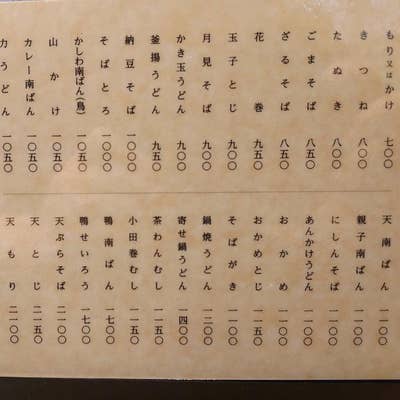 もり又はかけ 七〇〇
きつね 八〇〇
たぬき 八〇〇
ごまそば 八五〇
ざるそば 八五〇
花巻 九五〇
玉子とじ 九〇〇
月見そば 九〇〇
かき玉うどん 九〇〇
釜揚うどん 九五〇
納豆そば 一〇〇〇
そばとろ 一〇五〇
かしわ南ばん(鳥) 一〇五〇
山かけ 一〇五〇
カレー南ばん 一〇五〇
力うどん 一〇五〇
天南ばん 一一〇〇
親子南ばん 一一〇〇
にしんそば 一一〇〇
あんかけうどん 一一〇〇
おかめ 一一〇〇
おかめとじ 一一五〇
そばがき 一一〇〇
鍋焼うどん 一二〇〇
寄せ鍋うどん 一四〇〇
茶わんむし 一一五〇
小田巻むし 一一五〇
鴨南ばん 一七〇〇
鴨せいろう 一七〇〇
天ぷらそば 二一〇〇
天とじ 二一五〇
天もり 二一〇〇